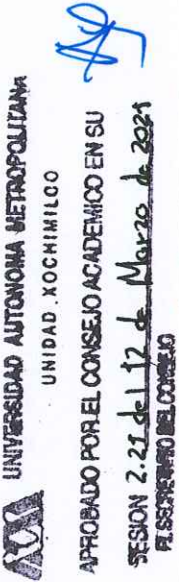 UNIVERSIDAD AUTONOMA METROPOLITANA
UNIDAD XOCHIMILCO
APROBADO POR EL CONSEJO ACADEMICO EN SU
SESION 2.21 del 12 de Marzo de 2021
EL SECRETARIO DEL CONSEJO